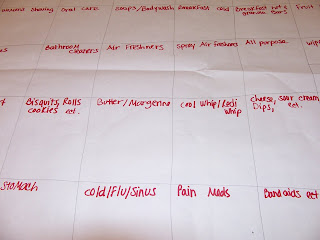 Shaving
Oral CARE
Soaps/Bodywash
Breakfast cold
Breakfast hot &
granola Bars
Fruit
Bathroom
cleaners
Air Freshners
Spray Air Freshners
All purpose.
Bisquits, Rolls
cookies ect.
Butter/Margerine
Cool Whip/Redi
whip
Cheese, sour cream
Dips, ect.
Stomach
Cold/Flu/Sinus
Pain Meds
Bandaids ect